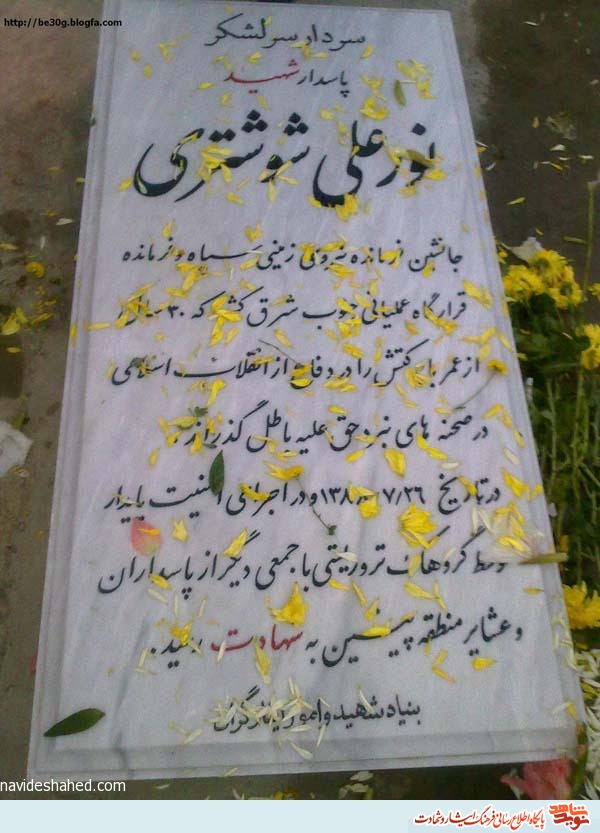 http://be30g.blogfa.com
سردار سرلشکر
پاسدار شهید
نورعلی شوشتری
جانشین فرمانده نیروی زمینی سپاه و فرمانده
قرارگاه عملیاتی جنوب شرق کشور که ۳۰ سال
از عمر با برکتش را در دفاع از انقلاب اسلامی
در صحنه های نبرد حق علیه باطل گذراند
در تاریخ ۱۳۸۸/۷/۲۶ و در اجرای امنیت پایدار
توسط گروهک تروریستی با جمعی دیگر از پاسداران
و عشایر منطقه پیشین به شهادت رسید.
بنیاد شهید و امور ایثارگران
navideshahed.com
پایگاه اطلاع رسانی فرهنگ ایثار و شهادت
نوید شاهد